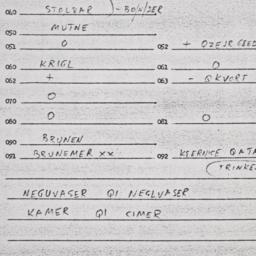 040 STOLBAR )-BONJER
050 MUTNE
051 O 052 + OZEJR
060 KRIGL 061 O
062 + 063 - QKVORT
070 O
080 O 081 O
090 BRUNEN
091 BRUNEMER XX 092 KSERNICE QATA
(TRINKE
NEGUVASER QI NEGLVASER
KAMER QI CIMER